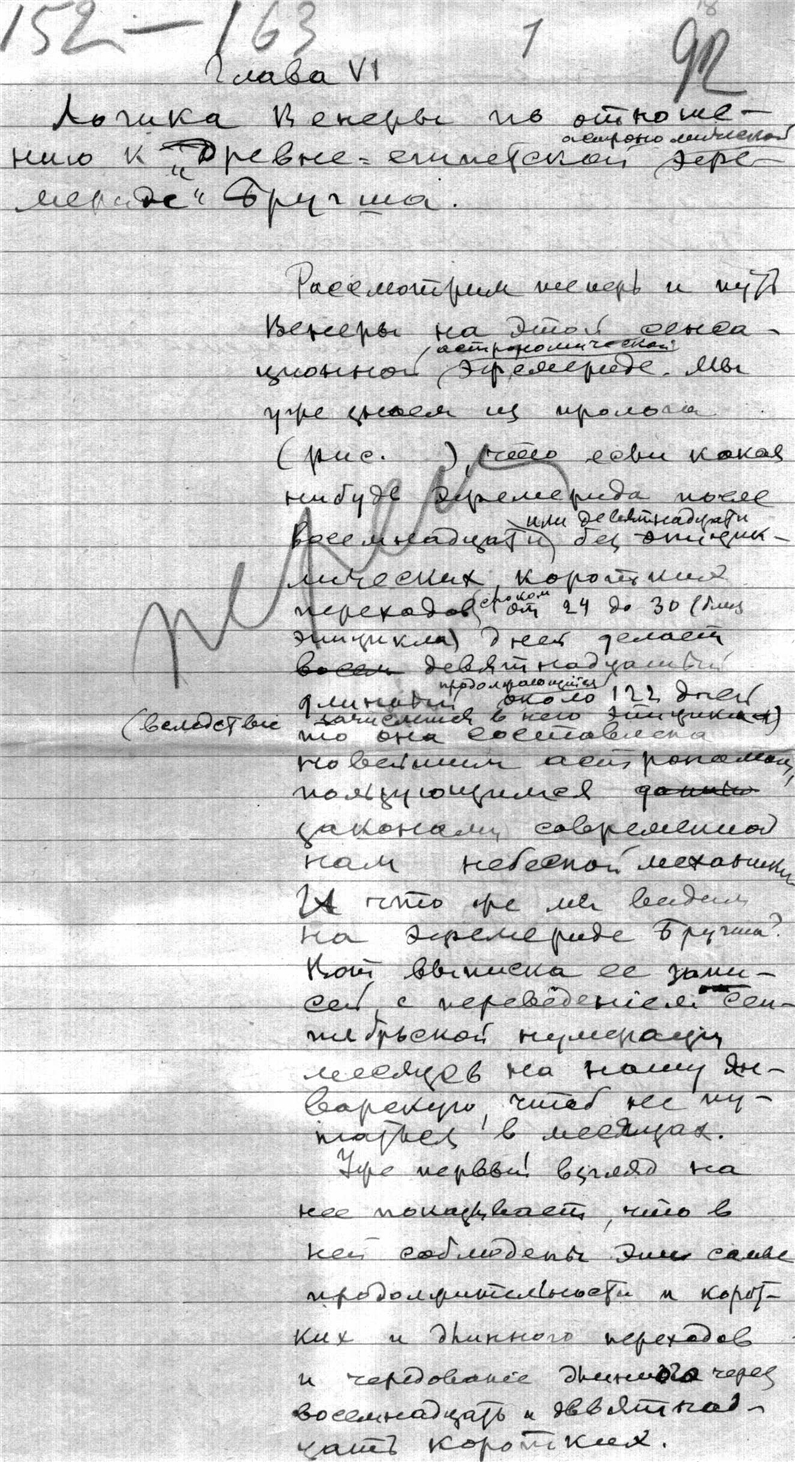 152 — 163 1 18 92
Глава VI
Логика Венеры по отноше-
астрономической
нию к „Древне-египетской эфе-
мериде“ Бругша.
Рассмотрим теперь и путь
Венеры на этой сенса-
астрономической
ционной эфемериде. Мы
уже знаем из пролога
(рис. ), что если какая
нибудь эфемерида после
или девятнадцати
восемнадцати без эпицик-
лических коротких
сроком
переходов от 24 до 30 (без
эпицикла) дней делает
восем девятнадцатый
продолжающийся
длинный около 122 дней
(вследствие зачисления в него эпицикла)
то она составлена
новейшим астрономом,
пользующимся
законами современной
нам небесной механики
И что же мы видим
на эфемериде Бругша?
Вот выписка ее запи-
сей, с переведением сен-
тябрьской нумерации
месяцев на нашу ян-
варскую, чтоб не пу-
таться в месяцах.
Уже первый взгляд на
нее показывает, что в
ней соблюдены эти самые
продолжительности и корот-
ких и длинного переходов
и чередование длинного через
восемнадцать и девятнад-
цать коротких.